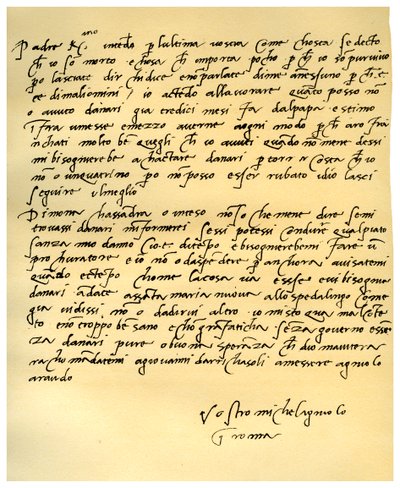 Padre K(mo) intendo p(er) lultima vostra come chosta se decto
ch io sō morto e chosa ch importa pocho p(er)ch io sō pur vivo
po lasciate dir chi dice e nō parlate di me a nessuno p(er)ch e
ce di mali omini / io actedo allavorare quato posso nō
o avuto danari gia tredici mesi fa dal papa e stimo
i fra u mese e mezo averne a ogni modo p(er)ch aro fra
nchati molto bē quegli ch io avuti quādo nō me ne dessi
mi bisogniereb e achactare danari p(er) torn r chosta ch io
nō o u quatrino po nō posso esser rubato idio lasci
seguire il meglio
Di mona chassadra o inteso nō so che mene dire se mi
trovassi danari miformerei se si potessi chondurr qua piato
sanza mio danno cioe di tēpo e bisognierebemi fare ū
prochuratore e io nō o da spēdere p(er) anchora avisatemi
quādo e ctēpo chome la cosa va e se se e vi bisognia
danari ādate a ssāta maria nuova allo spedalingo come
gia vi dissi nō o da dirvi altro io mi sto qua mal cōtē
to e nō troppo bē sano e chō grā faticha sēza governo e sēn
za danari pure o buona speranza ch dio m aiutera
rachomādatemi a giovanni da richasoli a messere agniolo
araudo
Vostro michelagniolo
ī roma